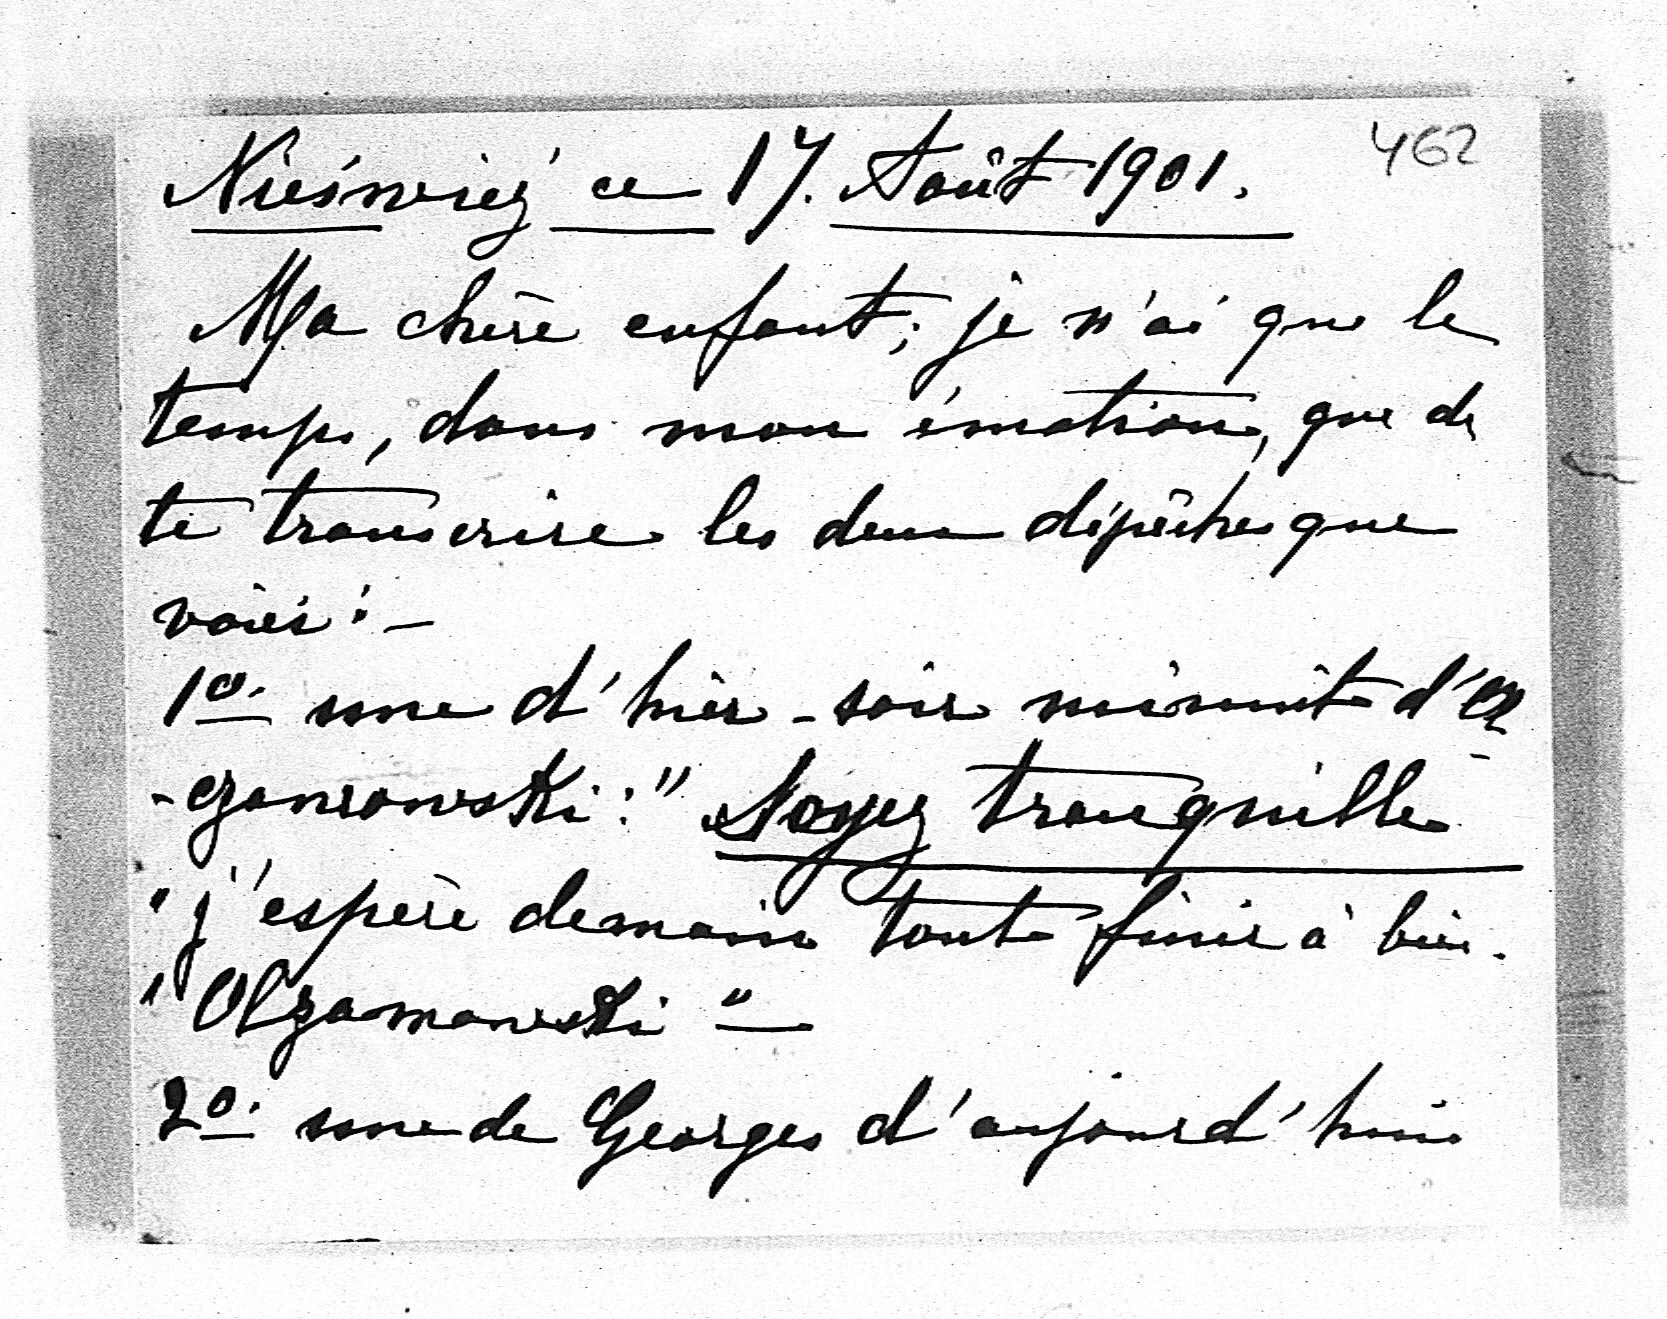 462
Nieśwież ce 17. Août 1901.
Ma chère enfant; je n'ai que le
temps, dans mon émotion, que de
te transcrire les deux dépêches que
voici: —
1º. une d'hier-soir minuit d'Ol
-czamowski: " Soyez tranquille
" j'espère demain tout finir à bien.
" Olzamowski " —
2º. une de Georges d'aujourd'hui